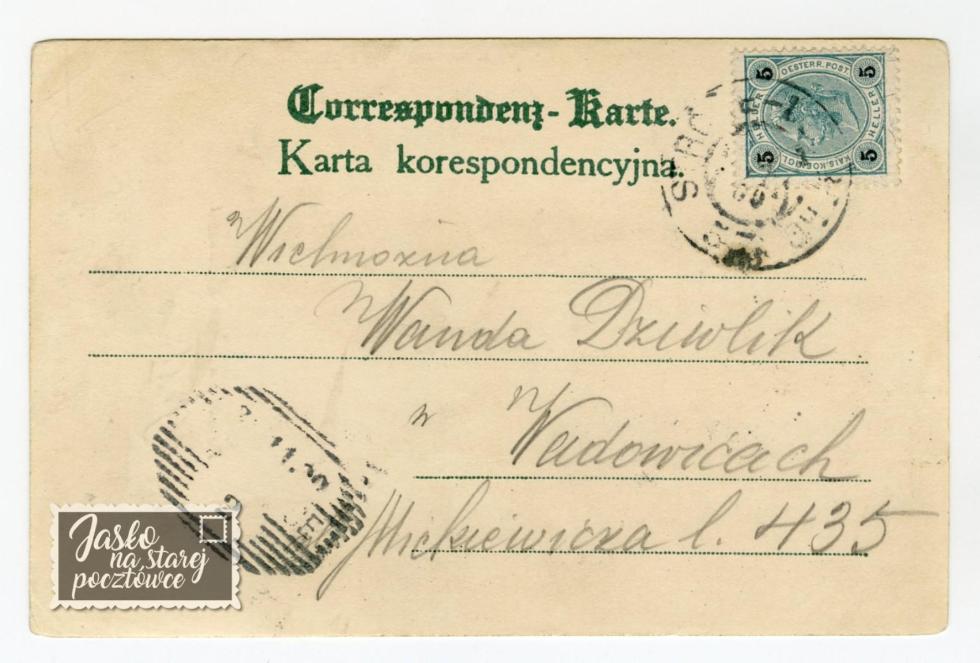 Correspondenz-Karte.
Karta korespondencyjna.
5 OESTERR. POST. 5
HELLER HELLER
5 KAIS. KOENIGL. 5
Wielmożna
Wanda Dziwlik
w Wadowicach
Mickiewicza l. 435
11.30
Jasło
na starej
pocztówce